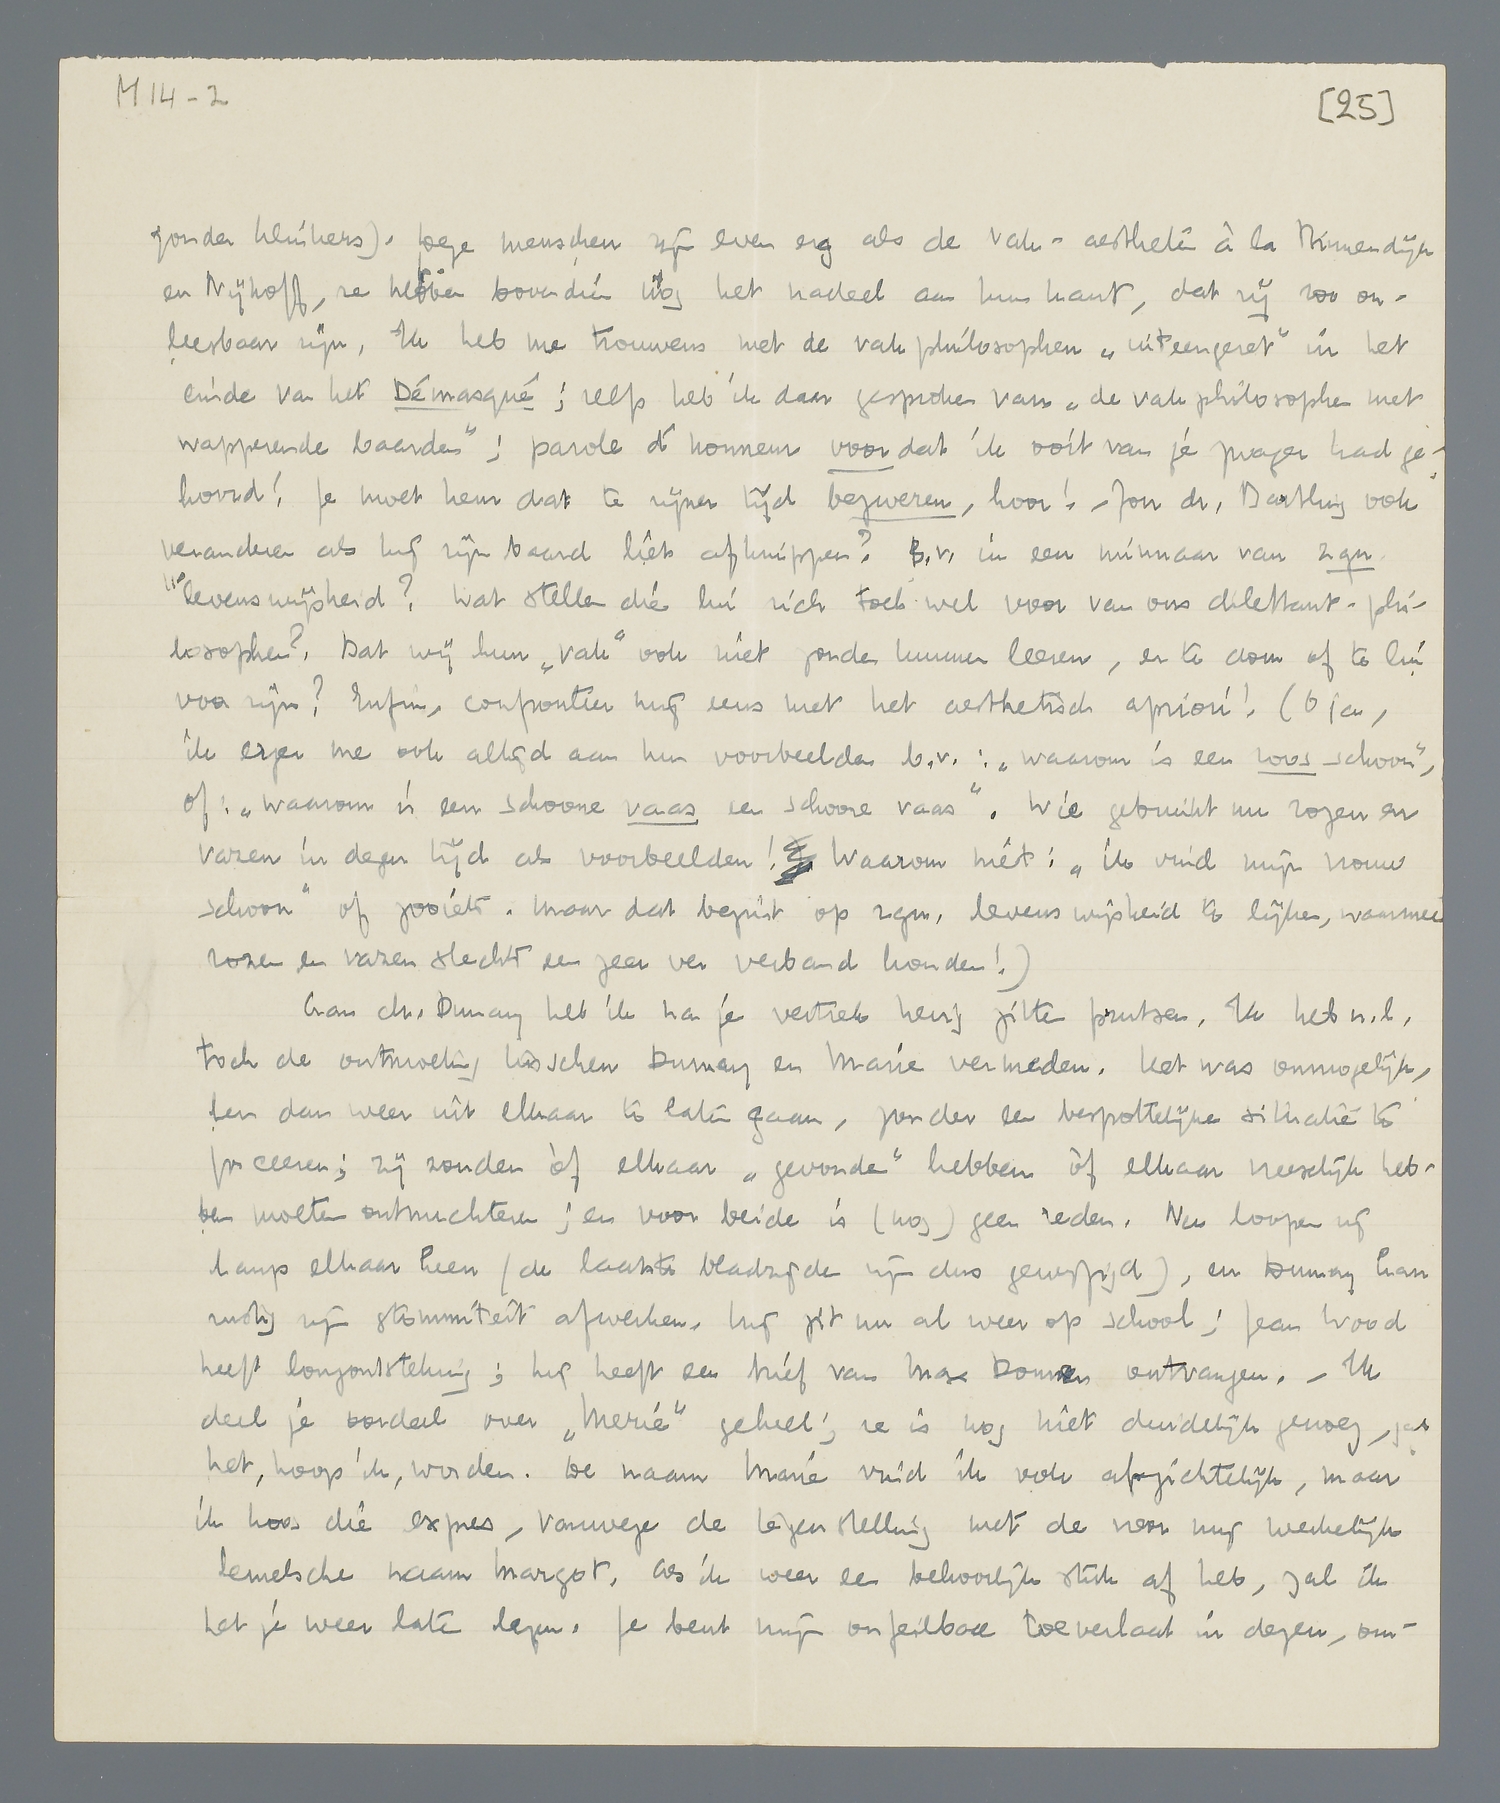 M 14 - 2
[25]
zonder klinkers). Deze menschen zijn even erg als de vak-aestheten à la Binnendijk
en Nijhoff, ze hebben bovendien nòg het nadeel aan hun kant, dat zij zoo on-
leesbaar zijn. Ik heb me trouwens met de vakphilosophen „uiteengezet" in het
einde van het Démasqué; zelfs heb ik daar gesproken van „de vakphilosophen met
wapperende baarden"; parole d'honneur voordat ik ooit van je zwager had ge-
hoord! Je moet hem dat te zijner tijd bezweren, hoor! - Zou dr. Bartling ook
veranderen als hij zijn baard liet afknippen? B.v. in een minnaar van zgn.
"levenswijsheid"? Wat stellen die lui zich toch wel voor van ons dilettant-phi-
losophen? Dat wij hun „vak" ook niet zouden kunnen leeren, er te dom of te lui
voor zijn? Enfin, confronteer hij eens met het aesthetisch apriori! (O ja,
ik erger me ook altijd aan hun voorbeelden b.v.: „waarom is een roos schoon",
of: „waarom is een schoone vaas een schoone vaas". Wie gebruikt nu rozen en
vazen in dezen tijd als voorbeelden! Waarom niet: „ik vind mijn vrouw
schoon" of zooiets. Maar dat begint op zgn. levenswijsheid te lijken, waarmee
rozen en vazen slechts een zeer ver verband houden!)
Aan dr. Dumay heb ik na je vertrek hevig zitten prutsen. Ik heb n.l.
toch de ontmoeting tusschen Dumay en Marie vermeden. Het was onmogelijk,
hen dan weer uit elkaar te laten gaan, zonder een bespottelijke situatie te
forceeren; zij zouden òf elkaar „gevonden" hebben òf elkaar vreeselijk heb-
ben moeten ontnuchteren; en voor beide is (nog) geen reden. Nu loopen zij
langs elkaar heen (de laatste bladzijden zijn dus gewijzigd), en Dumay kan
rustig zijn stommiteit afwerken. Hij zit nu al weer op school; Jean Wood
heeft longontsteking; hij heeft een brief van Max Donner ontvangen. - Ik
deel je oordeel over „Marie" geheel; ze is nog niet duidelijk genoeg, zal
het, hoop ik, worden. De naam Marie vind ik ook afzichtelijk, maar
ik koos die expres, vanwege de tegenstelling met de voor mij werkelijk
hemelsche naam Margot. Als ik weer een behoorlijk stuk af heb, zal ik
het je weer laten lezen. Je bent mijn onfeilbare toeverlaat in dezen, om-